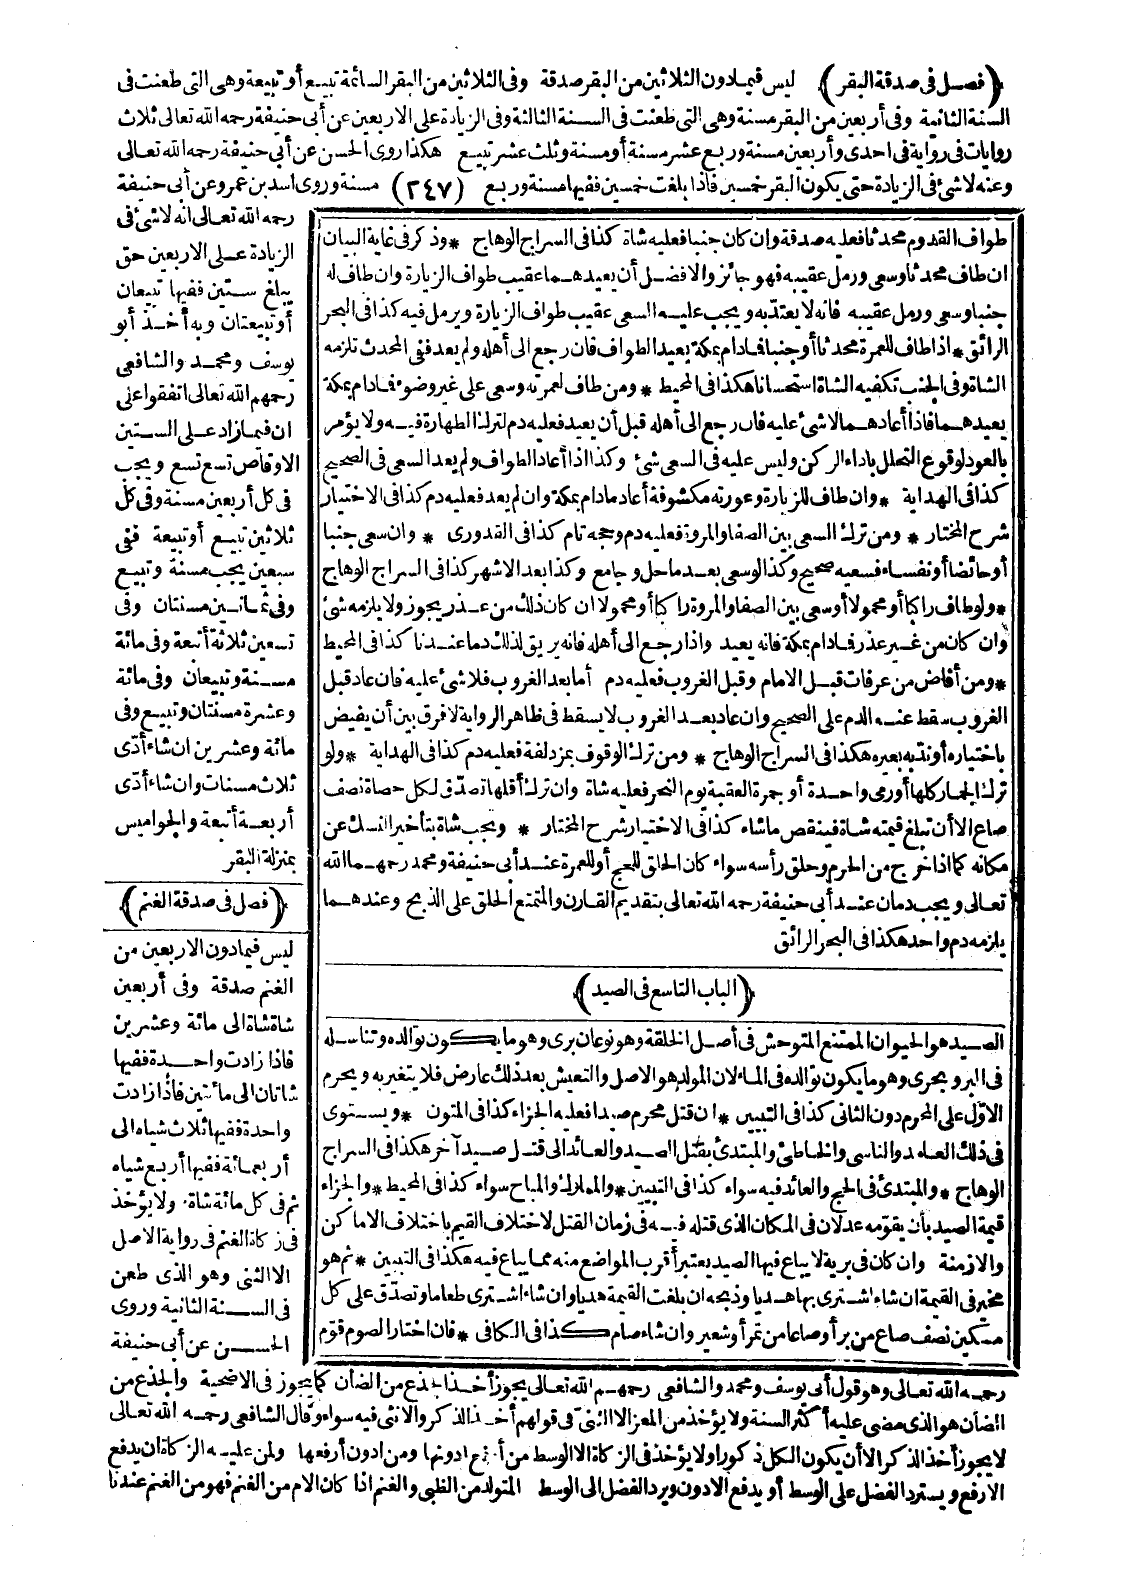 (فصل فى صدقة البقر) ليس فيمادون الثلاثين من البقر صدقة وفى الثلاثين من البقر السائمة تبيع أو تبيعة وهى التى طعنت فى
السنة الثانية وفى أربعين من البقر مسنة وهى التى طعنت فى السنة الثالثة وفى الزيادة على الاربعين عن أبى حنيفة رحمه الله تعالى ثلاث
روايات فى رواية فى احدى وأربعين مسنة وربع عشر مسنة أو مسنة وثلث عشر تبيع هكذا روى الحسن عن أبى حنيفة رحمه الله تعالى
وعنه لاشئ فى الزيادة حتى يكون البقر خمسين فاذا بلغت خمسين ففيها مسنة وربع (٢٤٧) مسنة وروى اسد بن عمرو عن أبى حنيفة
رحمه الله تعالى انه لاشئ فى
الزيادة عـلى الاربعين حتى
يبلغ ستين ففيها تبيعان
أو تبيعتان وبه أخذ أبو
يوسف ومحمد والشافعى
رحمهم الله تعالى اتفقوا على
ان فيما زاد على الستين
الاوقاص تسع تسع ويجب
فى كل أربعين مسنة وفى كل
ثلاثين تبيع أو تبيعة ففى
سبعين يجب مسنة وتبيع
وفى ثمانين مسنتان وفى
تسعين ثلاثة أتبعة وفى مائة
مسنة وتبيعان وفى مائة
وعشرة مسنتان وتبيع وفى
مائة وعشرين ان شاء أدّى
ثلاث مسنات وان شاء أدى
أربعة أتبعة والجواميس
بمنزلة البقر
(فصل فى صدقة الغنم)
ليس فيمادون الاربعين من
الغنم صدقة وفى أربعين
شاة شاة الى مائة وعشرين
فاذا زادت واحدة ففيها
شاتان الى مائتين فاذا زادت
واحدة ففيها ثلاث شياه الى
أربعمائة ففيها أربع شياه
ثم فى كل مائة شاة ولا يؤخذ
فى زكاة الغنم فى رواية الاصل
الا الثنى وهو الذى طعن
فى السنة الثانية وروى
الحسن عن أبى حنيفة
طواف القدوم محدثا فعليه صدقة وان كان جنبا فعليه شاة كذا فى السراج الوهاج * وذكر فى غاية البيان
ان طاف محدثا وسعى ورمل عقيبه فهو جائز والافضل أن يعيدهما عقيب طواف الزيارة وان طاف له
جنبا وسعى ورمل عقيبه فانه لا يعتدّ به ويجب عليه السعى عقيب طواف الزيارة ويرمل فيه كذا فى البحر
الرائق * اذا طاف للعمرة محدثا أو جنبا فادام بمكة يعيد الطواف فان رجع الى أهله ولم يعد ففى المحدث تلزمه
الشاة وفى الجنب تكفيه الشاة استحسانا هكذا فى المحيط * ومن طاف لعمرته وسعى على غير وضوء فادام بمكة
يعيدهما فاذا أعادهما لاشئ عليه فان رجع الى أهله قبل أن يعيد فعليه دم لترك الطهارة فيه ولا يؤمر
بالعود لوقوع التحلل باداء الركن وليس عليه فى السعى شئ وكذا اذا أعاد الطواف ولم يعد السعى فى الصحيح
كذا فى الهداية * وان طاف للزيارة وعورته مكشوفة أعاد مادام بمكة وان لم يعد فعليه دم كذا فى الاختيار
شرح المختار * ومن ترك السعى بين الصفا والمروة فعليه دم وحجه تام كذا فى القدورى * وان سعى جنبا
أو حائضا أو نفساء فسعيه صحيح وكذا لو سعى بعد ماحل وجامع وكذا بعد الاشهر كذا فى السراج الوهاج
* ولو طاف راكبا أو محمولا أو سعى بين الصفا والمروة راكبا أو محمولا ان كان ذلك من عذر يجوز ولا يلزمه شئ
وان كان من غير عذر فادام بمكة فانه يعيد واذا رجع الى أهله فانه يريق لذلك دما عندنا كذا فى المحيط
* ومن أفاض من عرفات قبل الامام وقبل الغروب فعليه دم أما بعد الغروب فلا شئ عليه فان عاد قبل
الغروب سقط عنه الدم على الصحيح وان عاد بعد الغروب لا يسقط فى ظاهر الرواية لا فرق بين أن يفيض
باختياره أو ندّ به بعيره هكذا فى السراج الوهاج * ومن ترك الوقوف بمزدلفة فعليه دم كذا فى الهداية * ولو
ترك الجمار كلها أو رمى واحدة أو جمرة العقبة يوم النحر فعليه شاة وان ترك أقلها تصدّق لكل حصاة نصف
صاع الا أن تبلغ قيمته شاة فينقص ماشاء كذا فى الاختيار شرح المختار * ويجب شاة بتأخير النسك عن
مكانه كما اذا خرج من الحرم وحلق رأسه سواء كان الحلق للحج أو للعمرة عند أبى حنيفة ومحمد رحمهما الله
تعالى ويجب دمان عند أبى حنيفة رحمه الله تعالى بتقديم القارن والمتمتع الحلق على الذبح وعندهما
يلزمه دم واحد هكذا فى البحر الرائق
(الباب التاسع فى الصيد)
الصيد هو الحيوان الممتنع المتوحش فى أصل الخلقة وهو نوعان برى وهو ما يكون توالده وتناسله
فى البر وبحرى وهو ما يكون توالده فى الماء لان المولد هو الاصل والتعيش بعد ذلك عارض فلا يتغير به ويحرم
الاوّل على المحرم دون الثانى كذا فى التبيين * ان قتل محرم صيدا فعليه الجزاء كذا فى المتون * ويستوى
فى ذلك العامد والناسى والخاطئ والمبتدئ بقتل الصيد والعائد الى قتل صيد آخر هكذا فى السراج
الوهاج * والمبتدئ فى الحج والعائد فيه سواء كذا فى التبيين * والمملوك والمباح سواء كذا فى المحيط * والجزاء
قيمة الصيد بأن يقوّمه عدلان فى المكان الذى قتله فيه فى زمان القتل لاختلاف القيم باختلاف الاماكن
والازمنة وان كان فى برية لا يباع فيها الصيد يعتبر أقرب المواضع منه مما يباع فيه هكذا فى التبيين * ثم هو
مخير فى القيمة ان شاء اشترى بها هديا وذبحه ان بلغت القيمة هديا وان شاء اشترى طعاما وتصدّق على كل
مسكين نصف صاع من بر أو صاعا من تمر أو شعير وان شاء صام كذا فى الكافى * فان اختار الصوم قوّم
رحمه الله تعالى وهو قول أبى يوسف ومحمد والشافعى رحمهم الله تعالى يجوز أخذ الجذع من الضأن كما يجوز فى الاضحية والجذع من
الضأن هو الذى مضى عليه أكثر السنة ولا يؤخذ من المعز الا الثنىّ فى قولهم أخذ الذكر والانثى فيه سواء وقال الشافعى رحمه الله تعالى
لا يجوز أخذ الذكر الا أن يكون الكل ذكورا ولا يؤخذ فى الزكاة الا الوسط من أرفع ادونها ومن ادون أرفعها ولمن عليه الزكاة ان يدفع
الارفع ويسترد الفضل على الوسط أو يدفع الادون ويرد الفضل الى الوسط المتولد من الظبى والغنم اذا كان الام من الغنم فهو من الغنم عندنا